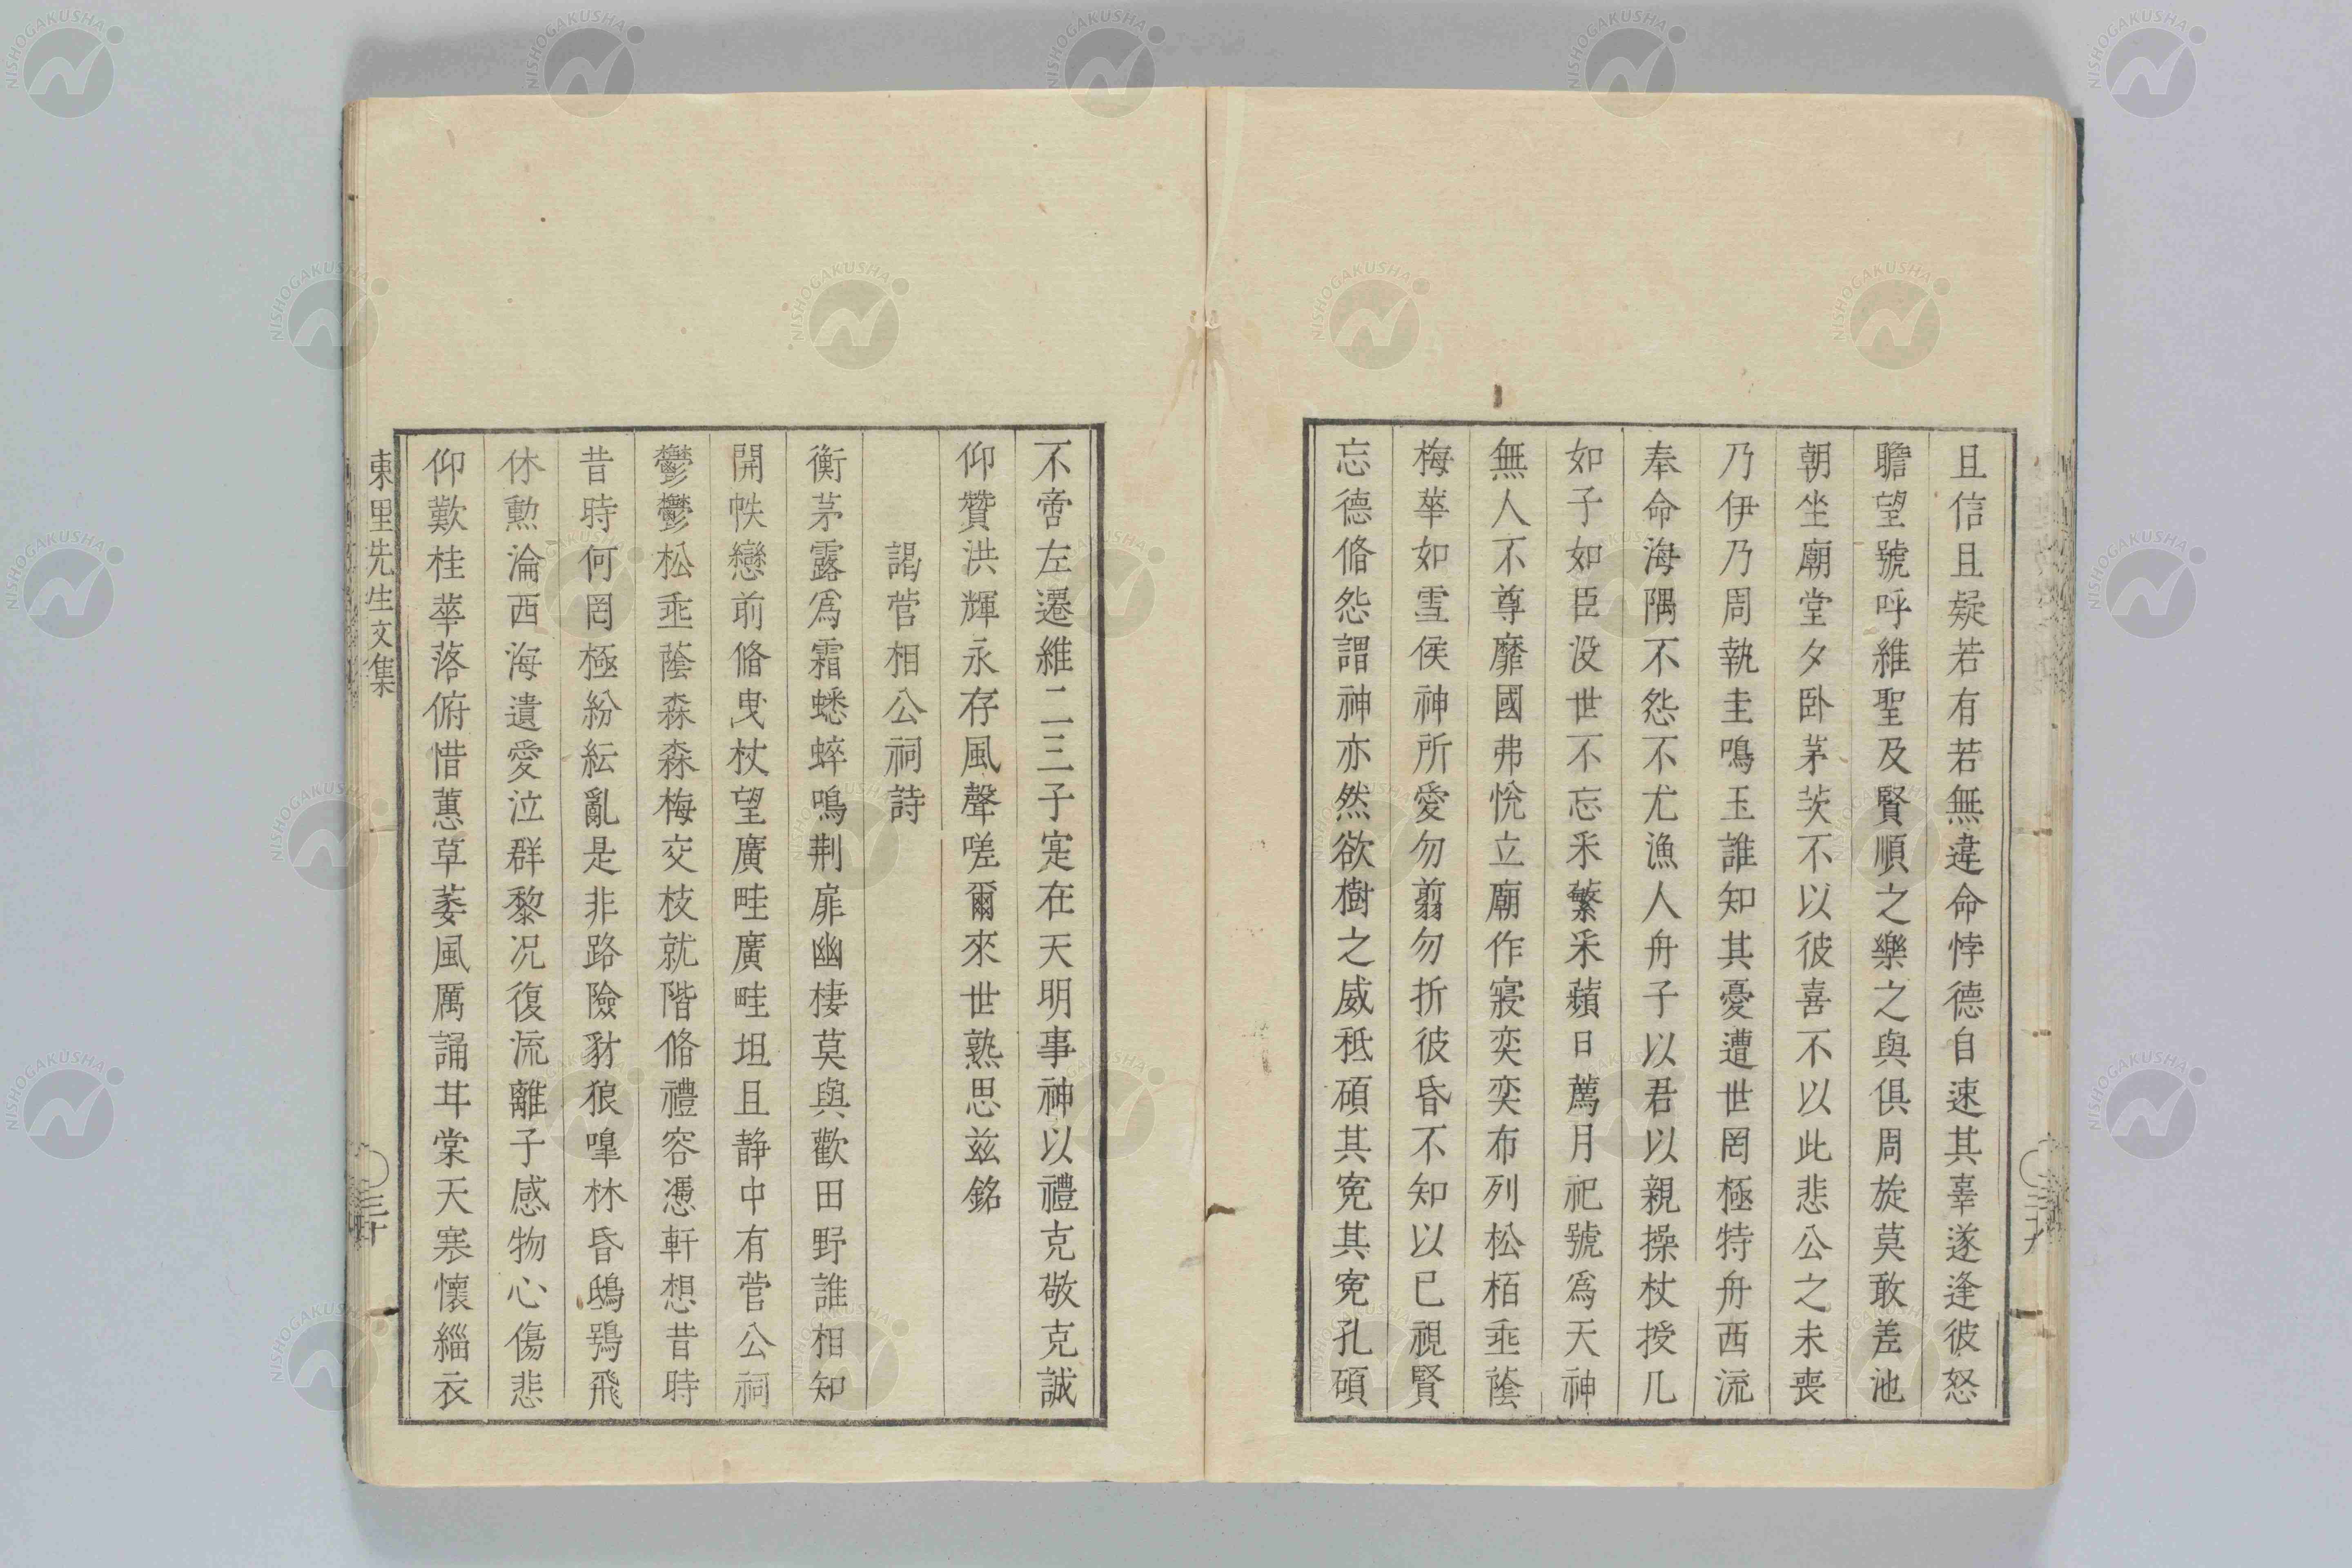 且信且疑若有若無違命悖德自速其辜遂逢彼怒
瞻望號呼維聖及賢順之樂之與俱周旋莫敢差池
朝坐廟堂夕卧茅茨不以彼喜不以此悲公之未喪
乃伊乃周執圭鳴玉誰知其憂遭世罔極特舟西流
奉命海隅不怨不尤漁人舟子以君以親操杖授几
如子如臣没世不忘采蘩采蘋日薦月祀號爲天神
無人不尊靡國弗悅立廟作寢奕奕布列松栢埀蔭
梅華如雪侯神所愛勿翦勿折彼昏不知以已視賢
忘德脩怨謂神亦然欲樹之威秪碩其寃其寃孔碩
三十九
不啻左遷維二三子寔在天明事神以禮克敬克誠
仰贊洪輝永存風聲嗟爾來世熟思兹銘
謁菅相公祠詩
衡茅露爲霜蟋蟀鳴荆扉幽棲莫與歡田野誰相知
開帙戀前脩曳杖望廣畦廣畦坦且静中有菅公祠
鬱鬱松埀蔭森森梅交枝就階脩禮容憑軒想昔時
昔時何罔極紛紜亂是非路險豺狼嗥林昏鴟鴞飛
休勲淪西海遺愛泣群黎况復流離子感物心傷悲
仰歎桂華落俯惜蕙草萎風厲誦甘棠天寒懷緇衣
東里先生文集
NISHOGAKUSHA